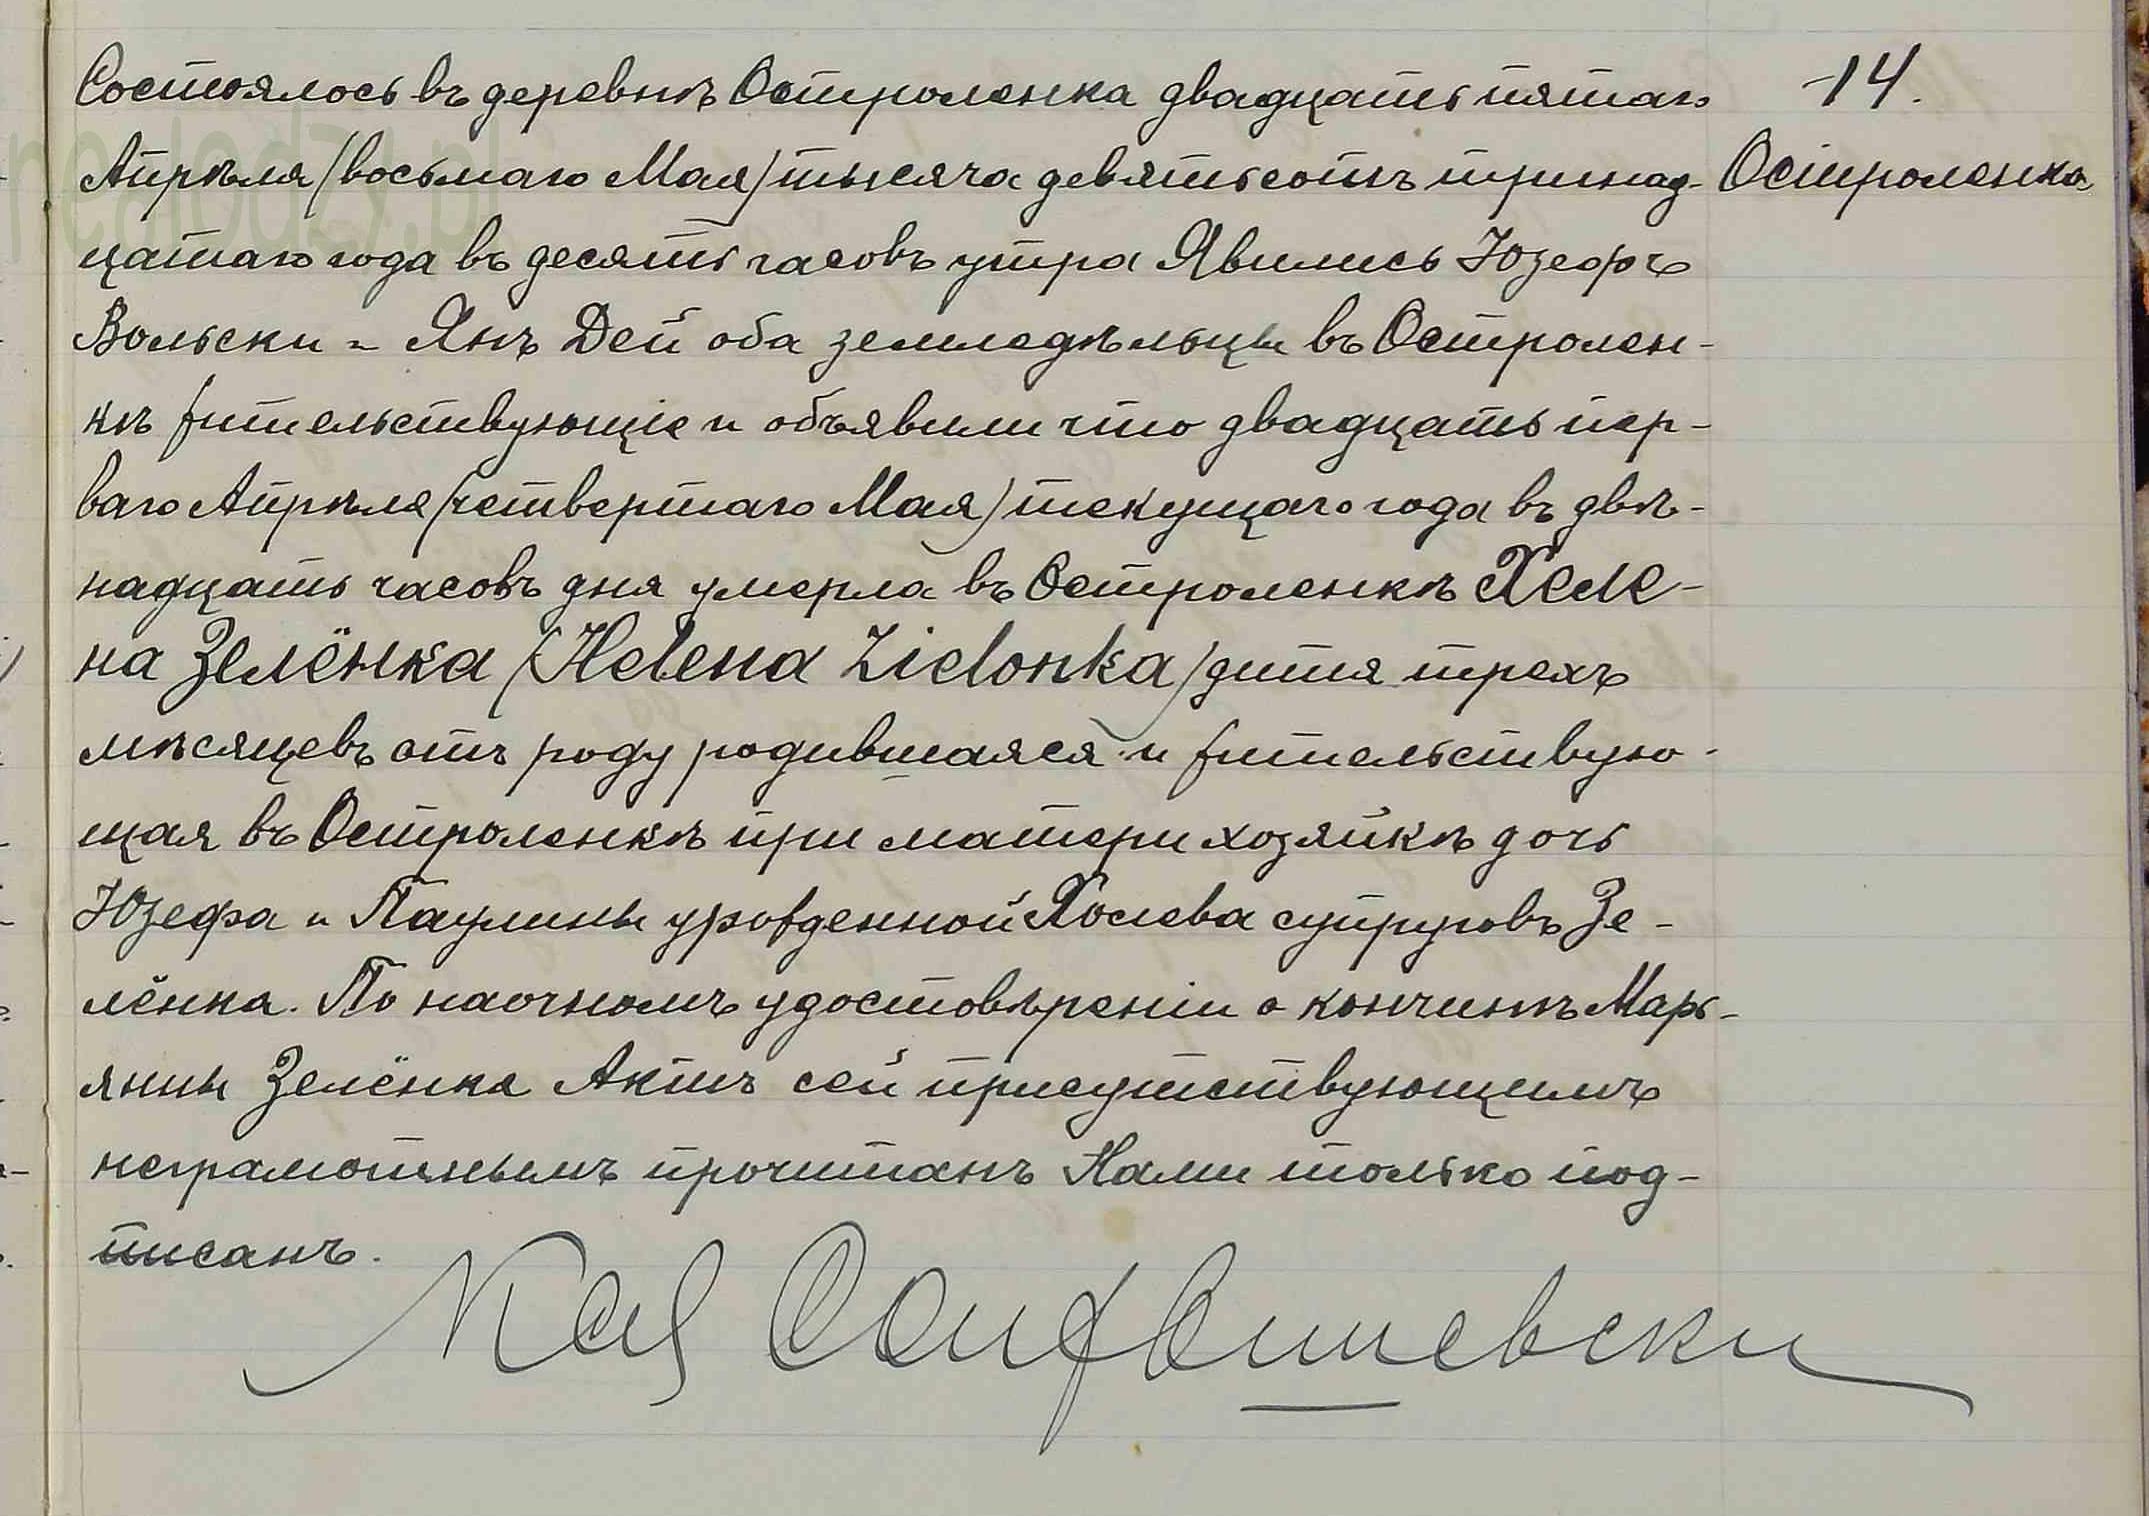 Состоялось въ деревнѣ Остроленка двадцать пятаго
14.
Апрѣля (восьмаго Мая) тысяча девятьсотъ тринад-
Остроленка
цатаго года въ десять часовъ утра Явились Юзефъ
Вольски и Янъ Дей оба земледѣльцы въ Остролен-
кѣ жительствующіе и объявили что двадцать пер-
ваго Апрѣля (четвертаго Мая) текущаго года въ двѣ-
надцать часовъ дня умерла въ Остроленкѣ Хеле-
на Зелёнка (Helena Zielonka) дитя трехъ
мѣсяцевъ отъ роду родившаяся и жительствую-
щая въ Остроленкѣ при матери хозяйкѣ дочь
Юзефа и Паулины урожденной супруговъ Зе-
лёнка. По наочномъ удостовѣреніи о кончинѣ Марь-
янны Зелёнка Актъ сей присутствующимъ
неграмотнымъ прочитанъ Нами только под-
писанъ.
nenodzy.pl